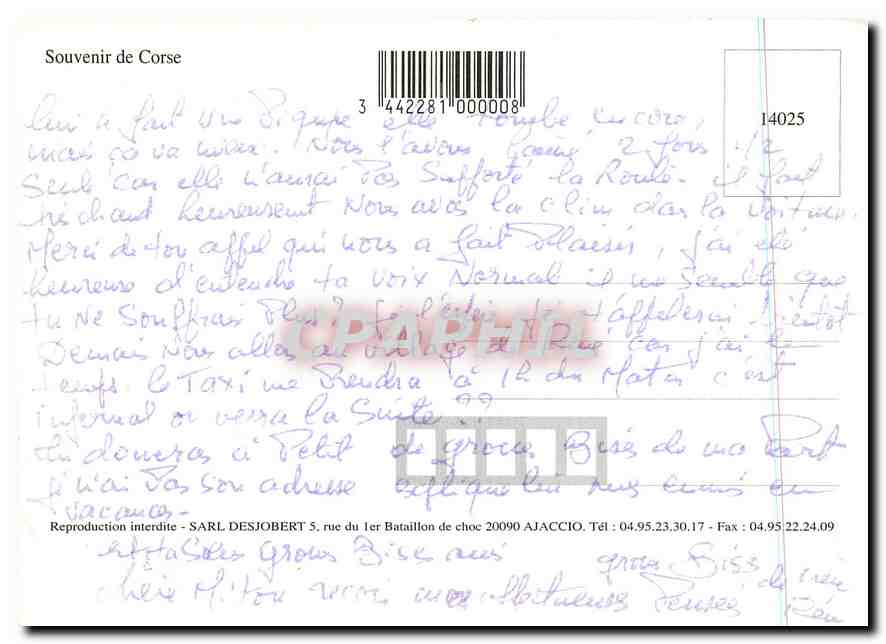 Souvenir de Corse
3 442281 000008
14025
lui a fait une Piqure elle tombe encore,
mais ça va mieux. Nous l'avons laissé 2 fois 1/2
Seule car elle n'aurai Pas Supporté la Route. il fait
très chaud heureusement Nous avos la clim das la voiture.
Merci de ton appel qui nous a fait Plaisir, j'ai été
heureuse d'entendre ta voix Normal il me semble que
tu Ne Souffrais Plus? t'appelerai Bientôt
Demais Nous allos au village de René car j'ai le
temps. le Taxi me Prendra à 1h du Matin c'est
infernal on verra la Suite !!
tu doneras à Petit de gross Bises de ma Part
je n'ai Pas son adresse explique lui mes ennuis en
vacances -
CPAPHIL
Reproduction interdite - SARL DESJOBERT 5, rue du 1er Bataillon de choc 20090 AJACCIO. Tél : 04.95.23.30.17 - Fax : 04.95 22.24.09
gross Bises gross Bises
chère reçois mes affectueuses Pensées